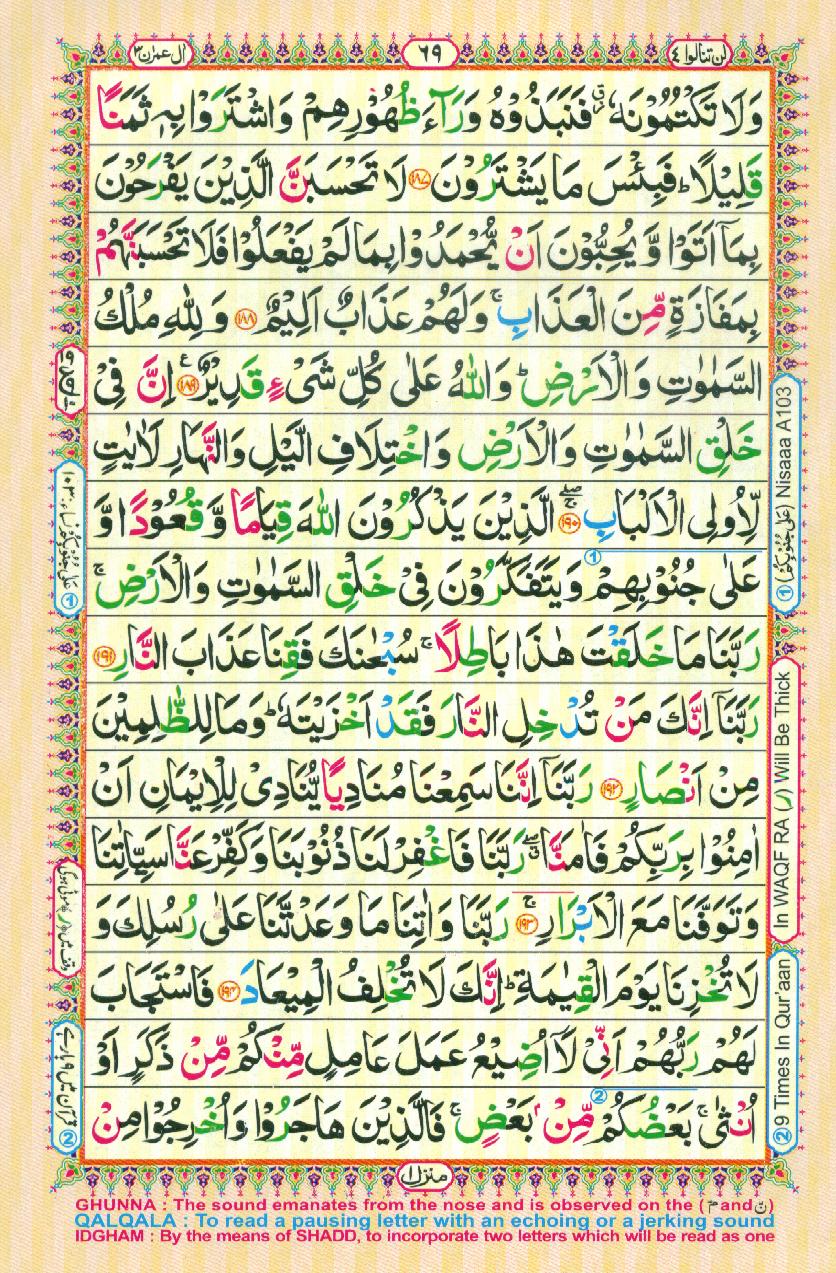 لن تنالوا ٤
٦٩
ال عمرن ٣
وَلَا تَكْتُمُوْنَهٗ ۫ فَنَبَذُوْهُ وَرَآءَ ظُهُوْرِهِمْ وَاشْتَرَوْا بِهٖ ثَمَنًا
قَلِيْلًا ؕ فَبِئْسَ مَا يَشْتَرُوْنَ ﴿۱۸۷﴾ لَا تَحْسَبَنَّ الَّذِيْنَ يَفْرَحُوْنَ
بِمَاۤ اَتَوْا وَّ يُحِبُّوْنَ اَنْ يُّحْمَدُوْا بِمَا لَمْ يَفْعَلُوْا فَلَا تَحْسَبَنَّهُمْ
بِمَفَازَةٍ مِّنَ الْعَذَابِ ۚ وَلَهُمْ عَذَابٌ اَلِيْمٌ ﴿۱۸۸﴾ وَ لِلّٰهِ مُلْكُ
السَّمٰوٰتِ وَ الْاَرْضِ ؕ وَاللّٰهُ عَلٰى كُلِّ شَىْءٍ قَدِيْرٌ ﴿۱۸۹﴾ اِنَّ فِىْ
خَلْقِ السَّمٰوٰتِ وَالْاَرْضِ وَاخْتِلَافِ الَّيْلِ وَالنَّهَارِ لَاٰيٰتٍ
لِّاُولِى الْاَلْبَابِ ﴿۱۹۰﴾ الَّذِيْنَ يَذْكُرُوْنَ اللّٰهَ قِيَامًا وَّ قُعُوْدًا وَّ
عَلٰى جُنُوْبِهِمْ وَيَتَفَكَّرُوْنَ فِىْ خَلْقِ السَّمٰوٰتِ وَالْاَرْضِ ۚ
رَبَّنَا مَا خَلَقْتَ هٰذَا بَاطِلًا ۚ سُبْحٰنَكَ فَقِنَا عَذَابَ النَّارِ ﴿۱۹۱﴾
رَبَّنَاۤ اِنَّكَ مَنْ تُدْخِلِ النَّارَ فَقَدْ اَخْزَيْتَهٗ ؕ وَمَا لِلظّٰلِمِيْنَ
مِنْ اَنْصَارٍ ﴿۱۹۲﴾ رَبَّنَاۤ اِنَّنَا سَمِعْنَا مُنَادِيًا يُّنَادِىْ لِلْاِيْمَانِ اَنْ
اٰمِنُوْا بِرَبِّكُمْ فَاٰمَنَّا ۖ رَبَّنَا فَاغْفِرْ لَنَا ذُنُوْبَنَا وَكَفِّرْ عَنَّا سَيِّاٰتِنَا
وَتَوَفَّنَا مَعَ الْاَبْرَارِ ﴿۱۹۳﴾ رَبَّنَا وَاٰتِنَا مَا وَعَدْتَّنَا عَلٰى رُسُلِكَ وَ
لَا تُخْزِنَا يَوْمَ الْقِيٰمَةِ ؕ اِنَّكَ لَا تُخْلِفُ الْمِيْعَادَ ﴿۱۹۴﴾ فَاسْتَجَابَ
لَهُمْ رَبُّهُمْ اَنِّىْ لَاۤ اُضِيْعُ عَمَلَ عَامِلٍ مِّنْكُمْ مِّنْ ذَكَرٍ اَوْ
اُنْثٰى ۚ بَعْضُكُمْ مِّنْۢ بَعْضٍ ۚ فَالَّذِيْنَ هَاجَرُوْا وَاُخْرِجُوْا مِنْ
منزل ١
① (عَلٰى جُنُوْبِكُمْ) Nisaaa A103
In WAQF RA (ر) Will Be Thick
② 9 Times In Qur'aan
① عَلٰى جُنُوْبِكُمْ نساء: ١٠٣
② قرآن میں ۹ بار ہے
GHUNNA : The sound emanates from the nose and is observed on the (مّ and نّ)
QALQALA : To read a pausing letter with an echoing or a jerking sound
IDGHAM : By the means of SHADD, to incorporate two letters which will be read as one